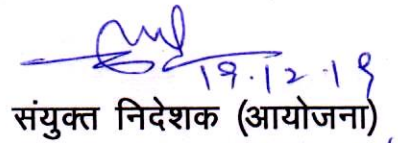 19.12.19
संयुक्त निदेशक (आयोजना)